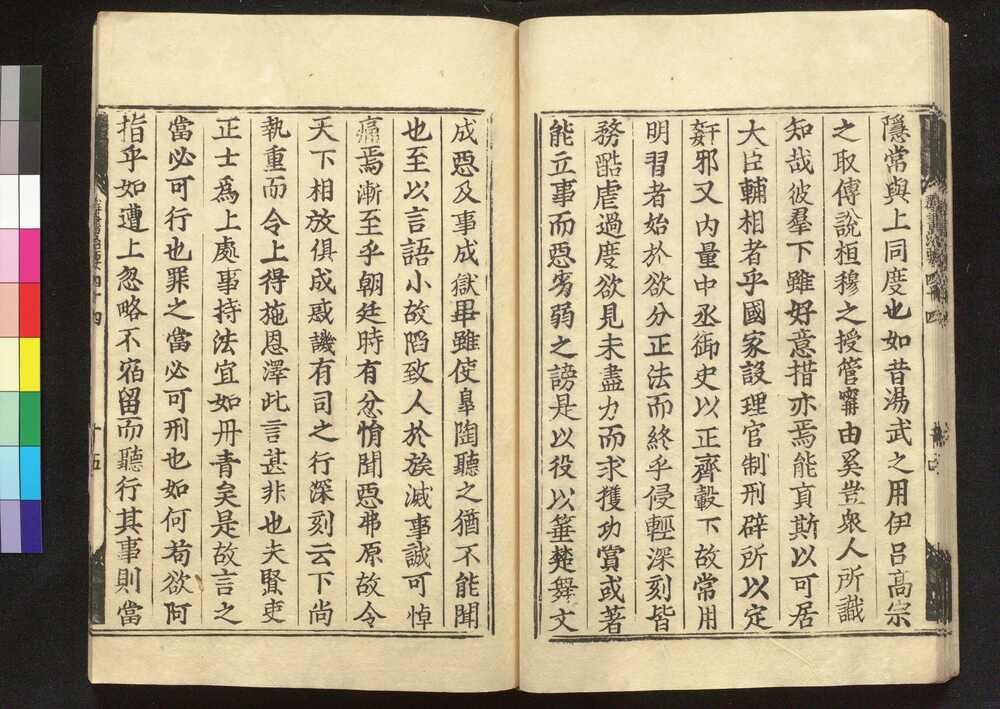 隱常與上同度也如昔湯武之用伊呂高宗
之取傅說桓穆之授管甯由奚豈衆人所識
知哉彼羣下雖好意措亦焉能貢斯以可居
大臣輔相者乎國家設理官制刑辟所以定
姧邪又内量中丞御史以正齊轂下故常用
明習者始於欲分正法而終乎侵輕深刻皆
務酷虐過度欲見未盡力而求獲功賞或著
能立事而惡劣弱之謗是以役以箠楚舞文
成惡及事成獄畢雖使皐陶聽之猶不能聞
也至以言語小故陷致人於族滅事誠可悼
痛焉漸至乎朝廷時有忿悁聞惡弗原故令
天下相放俱成惑譏有司之行深刻云下尚
執重而令上得施恩澤此言甚非也夫賢吏
正士爲上處事持法宜如丹青矣是故言之
當必可行也罪之當必可刑也如何苟欲阿
指乎如遭上忽略不宿留而聽行其事則當
群書治要四十四
十五